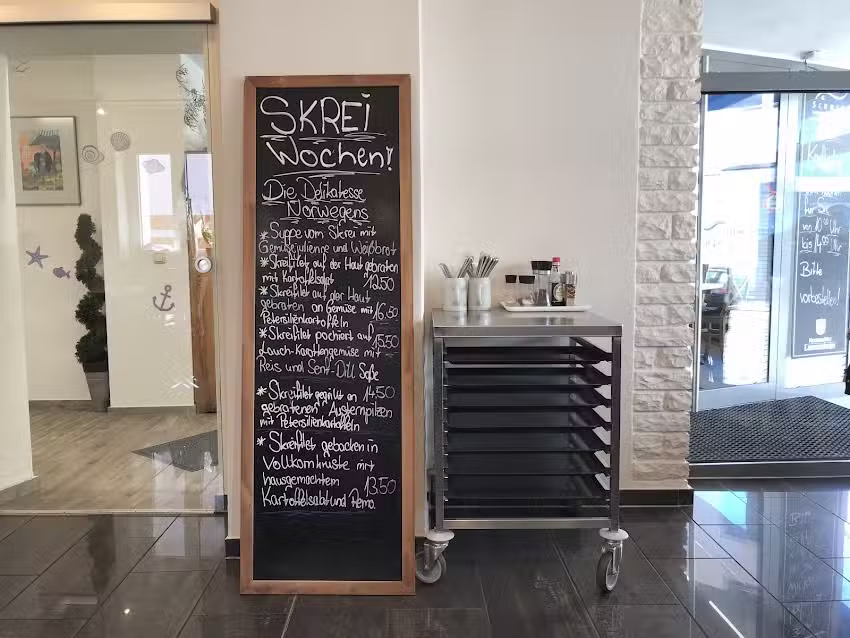 SKREI
Wochen!
Die Delikatesse
Norwegens
* Suppe vom Skrei mit
Gemüsejulienne und Weißbrot
* Skreifilet auf der Haut gebraten
mit Kartoffelsalat 12.50
* Skreifilet auf der Haut
gebraten an Gemüse mit 16.50
Petersilienkartoffeln
* Skreifilet pochiert auf 15.50
Lauch-Karottengemüse mit
Reis und Senf-Dill Soße
* Skreifilet gegrillt an 14.50
gebratenen Austernpilzen
mit Petersilienkartoffeln
* Skreifilet gebacken in
Vollkornkruste mit
hausgemachtem 13.50
Kartoffelsalat und Remo.
für Sie
von 10.00 Uhr
bis
Bitte
vorbestellen!